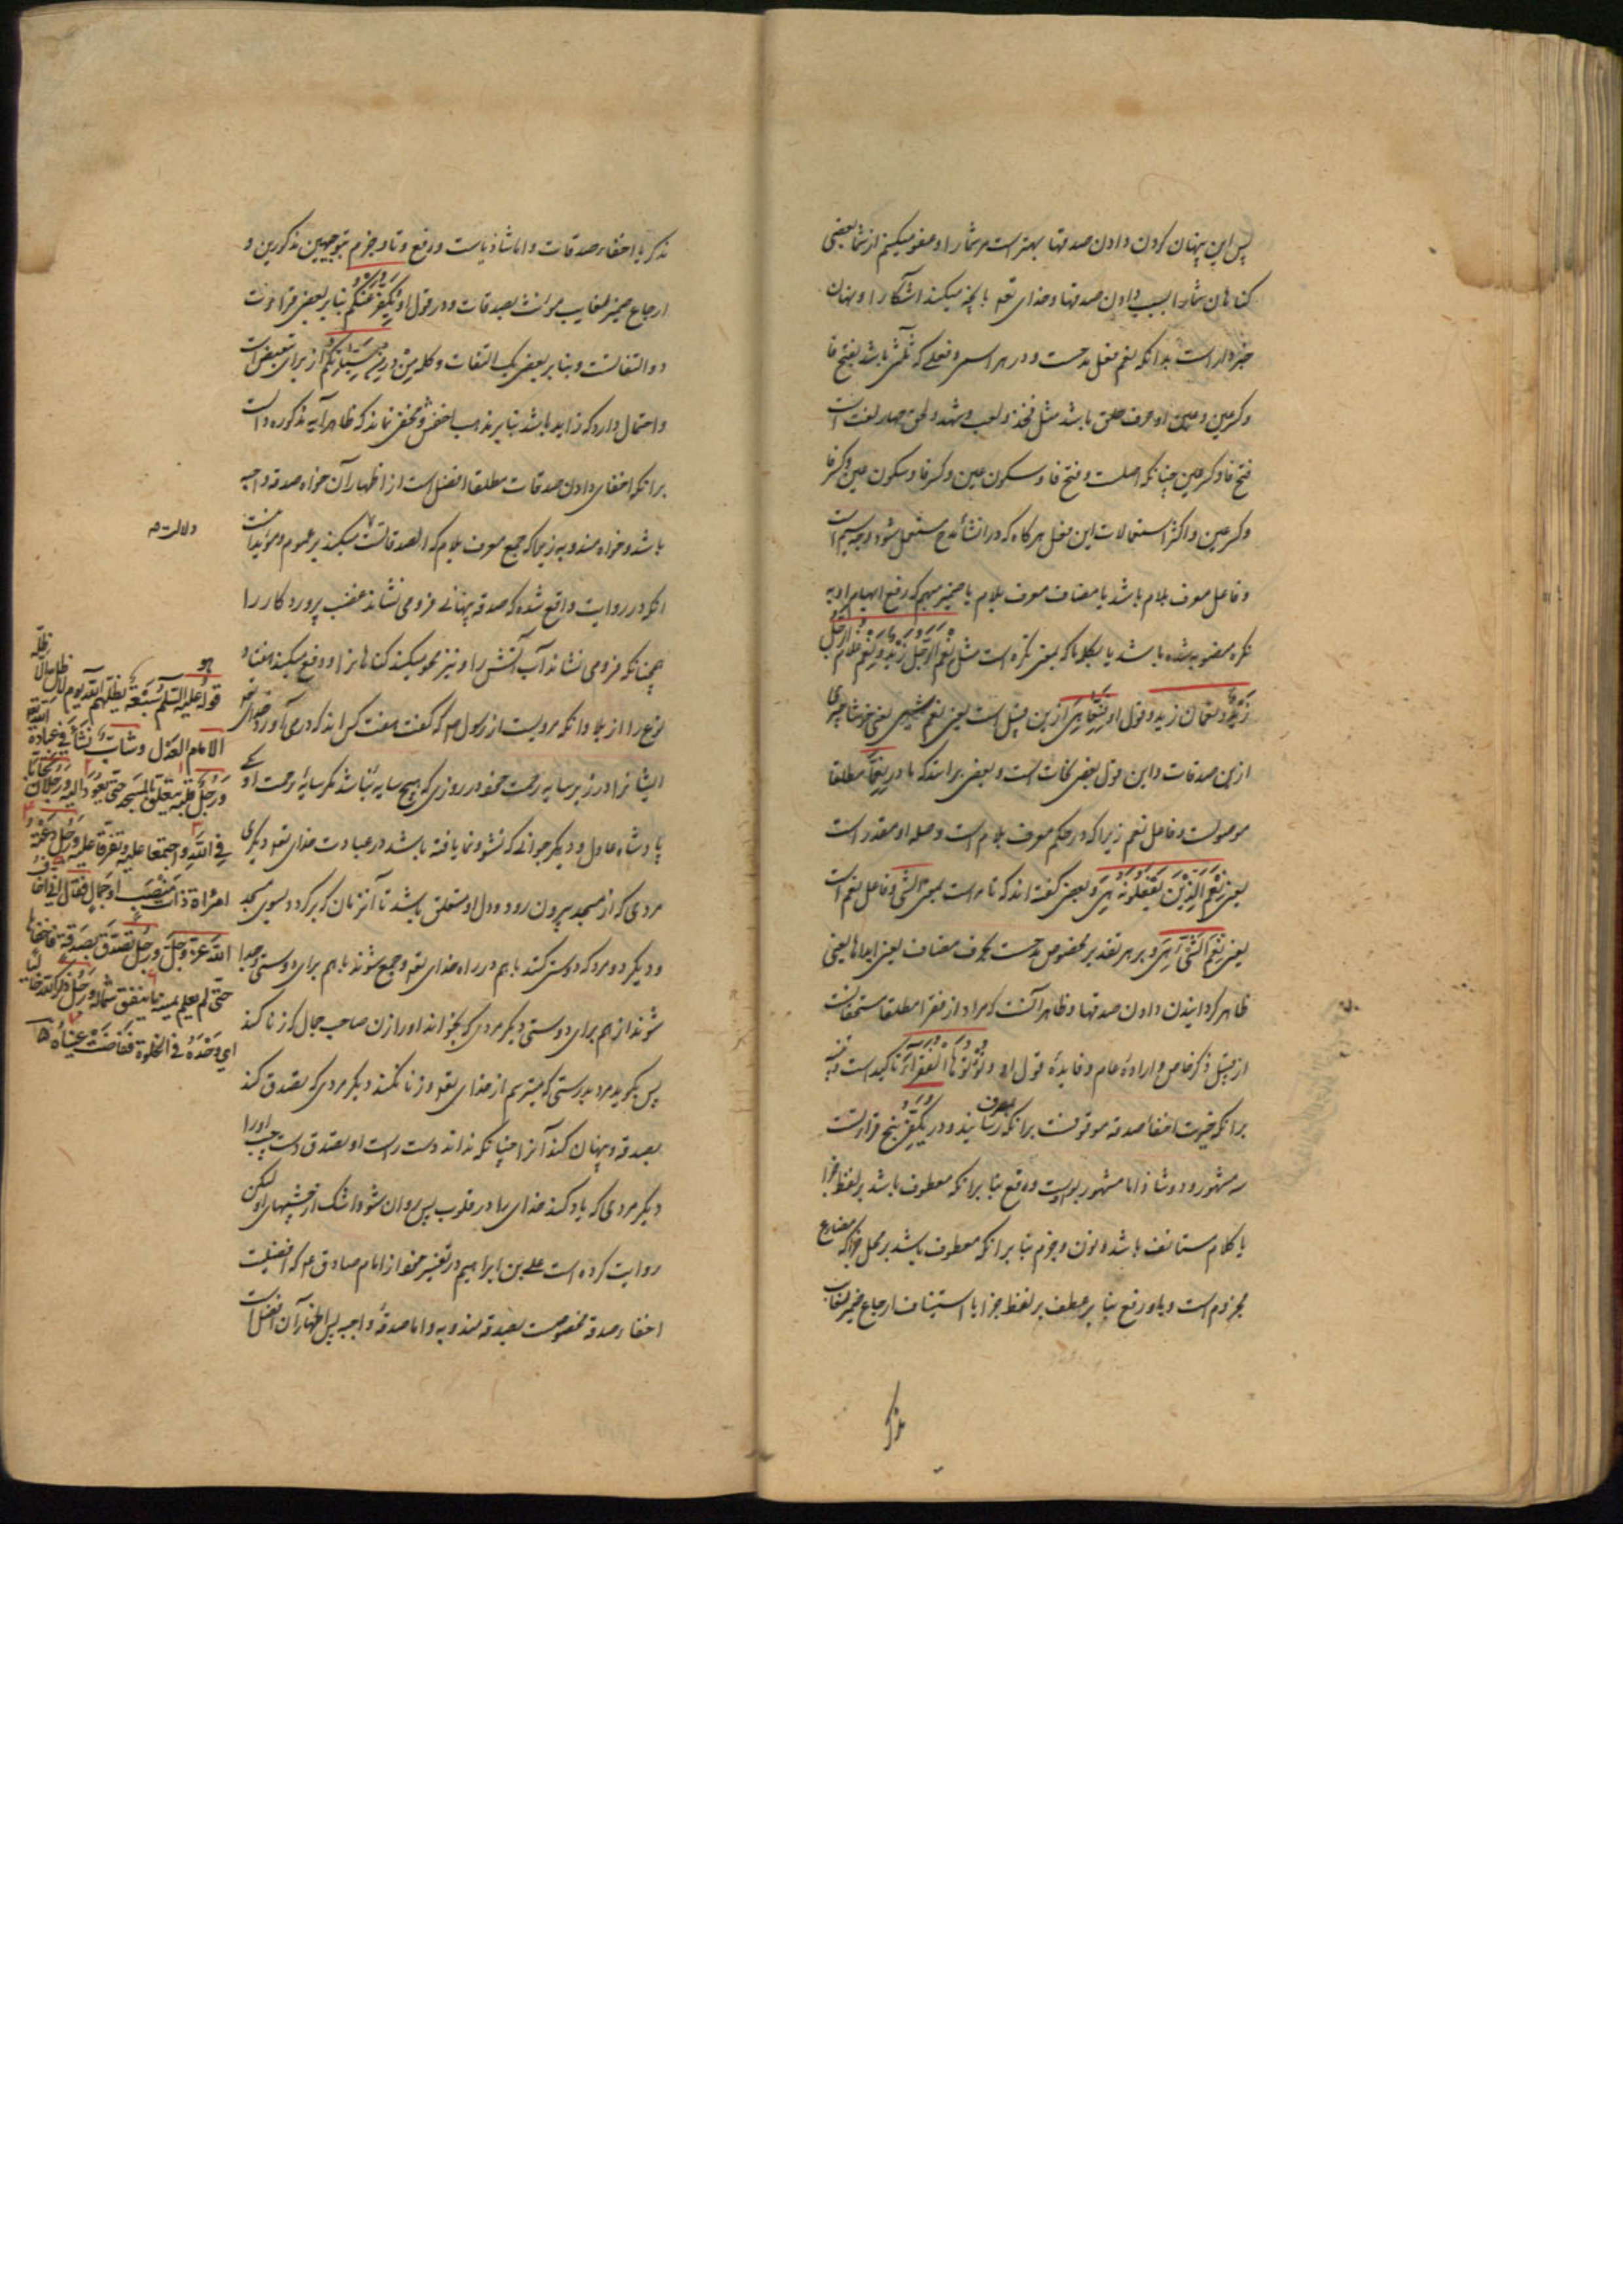 پس این پنهان کردن و دادن صدقها بهتر است مر شما را و عفو میکنیم از شما بعضی
کناهان شما را بسبب دادن صدقها و خدای تعه بانچه میکنید اشکارا و پنهان
خبردار است بدانکه نعم فعل مدحست و در هر اسمی و فعلی که ثلثی باشد بفتح فا
و کسر عین و عین او حرف حلق باشد مثل فخذ و لعب و شهد و لحق چهار لغت است
فتح فا و کسر عین چنانکه اصلست و فتح فا و سکون عین و کسر فا و سکون عین و کسر فا
و کسر عین و اکثر استعمالات این فعل هرکاه که در انشاء مدح مستعمل شود و جه سیم است
و فاعل معرف بلام باشد یا مضاف معرف بلام یا ضمیر مبهم که رفع ابهام او به
نکره منصوبه شده باشد یا بکلمه ما که بمعنی نکره است مثل نعم الرجل زید و نعم غلام الرجل
زید و نعما زید و قول او فنعما هی ازین قبیل است یعنی نعم شیئی هی یعنی خوشا چیزی
ازین صدقات و این قول بعضی نحات است و بعضی برانند که ما در نعما مطلقا
موصولست و فاعل نعم زیرا که در حکم معرف بلام است و صله او مقدر است
یعنی نعم الذین یفعلونه هی و بعضی کفته اند که تامه است بمعنی الشئ و فاعل نعم است
یعنی نعم الشئ هی و بر هر تقدیر مخصوص مدحست بحذف مضاف یعنی ابداها یعنی
ظاهر کردانیدن دادن صدقها و ظاهر آنست که مراد از فقرا مطلقا مستحقانست
از قبیل ذکر خاص و اراده عام و فایده قول او و تؤتوها الفقراء تاکید است و تنبیه
برانکه خیریت اخفاء صدقه موقوفست برانکه بمصرف رسانید و در یکفر پنج قرائتست
سه مشهور و دو شاذ اما مشهور بیاست و رفع بنا برانکه معطوف باشد بر لفظ جزا
یا کلام مستانف باشد و نون و جزم بنا برانکه معطوف باشد بر محل جزا که مضارع
مجزوم است و یا و رفع بنا بر عطف بر لفظ جزا یا استیناف و ارجاع ضمیر غایب
مذکر
مذکر باخفاء صدقات و اما شاذ یاست و رفع و تا و جزم بتوجیهین مذکورین و
ارجاع ضمیر غایب مؤنث بصدقات و در قول او و نکفر عنکم بنا بر بعضی قراءت
دو التفاتست و بنا بر بعضی یک التفات و کلمه من در من سیئاتکم از برای تبعیض است
و احتمال دارد که زایده باشد بنا بر مذهب اخفش و مخفی نماند که ظاهر آیه مذکوره دالست
برانکه اخفای دادن صدقات مطلقا افضل است از اظهار آن خواه صدقه واجبه
باشد و خواه مندوبه زیرا که جمع معرف بلام که الصدقاتست میکند بر عموم و مؤید اینست
دلالت صه
انکه در روایت واقع شده که صدقه پنهانی فرو می نشاند غضب پروردکار را
همچنانکه فرو می نشاند آب آتش را و نیز محو میکند کناهانرا و دفع میکند هفتاد
نوع را از بلا و انکه مرویست از رسول صه که کفت هفت کس اند که در می آورد خدای تعه
ایشانرا در زیر سایه رحمت خود در روزی که هیچ سایه نباشد مکر سایه رحمت او یکی
پادشاه عادل و دیکر جوانی که نشو و نما یافته باشد در عبادت خدای تعه و دیکری
مردی که از مسجد بیرون رود و دل او متعلق باشد تا آنزمان که برکردد بسوی مسجد
و دیکر دو مرد که دوستی کنند با هم در راه خدای تعه و جمع شوند با هم برای دوستی و جدا
شوند از هم برای دوستی دیکر مردی که بخواند او را زن صاحب جمال که زنا کند
پس بکوید مرد بدرستی که میترسم از خدای تعه و زنا نکند دیکر مردی که تصدق کند
بصدقه و پنهان کند آنرا چنانکه نداند دست راست او بتصدق دست چپ او را
دیکر مردی که یاد کند خدای را در خلوت پس روان شود اشک از چشمهای او لیکن
روایت کرده است علی بن ابراهیم در تفسیر خود از امام صادق عه که افضلیت
اخفاء صدقه مخصوصست بصدقه مندوبه و اما صدقه واجبه پس اظهار آن افضل است
قوله علیه السلم سبعة یظلهم الله یوم لا ظل الا ظله
الامام العدل وشاب نشأ فی عبادة الله تعه
ورجل قلبه یتعلق بالمسجد حتی یعود الیه ورجلان تحابا
فی الله واجتمعا علیه وتفرقا علیه ورجل دعته
امرأة ذات منصب او جمال فقال انی اخاف
الله عز وجل ورجل تصدق بصدقة فاخفاها
حتی لم یعلم یمینه ما ینفق شماله ورجل ذکر الله خالیا
ای وحده فی الخلوة ففاضت عیناه